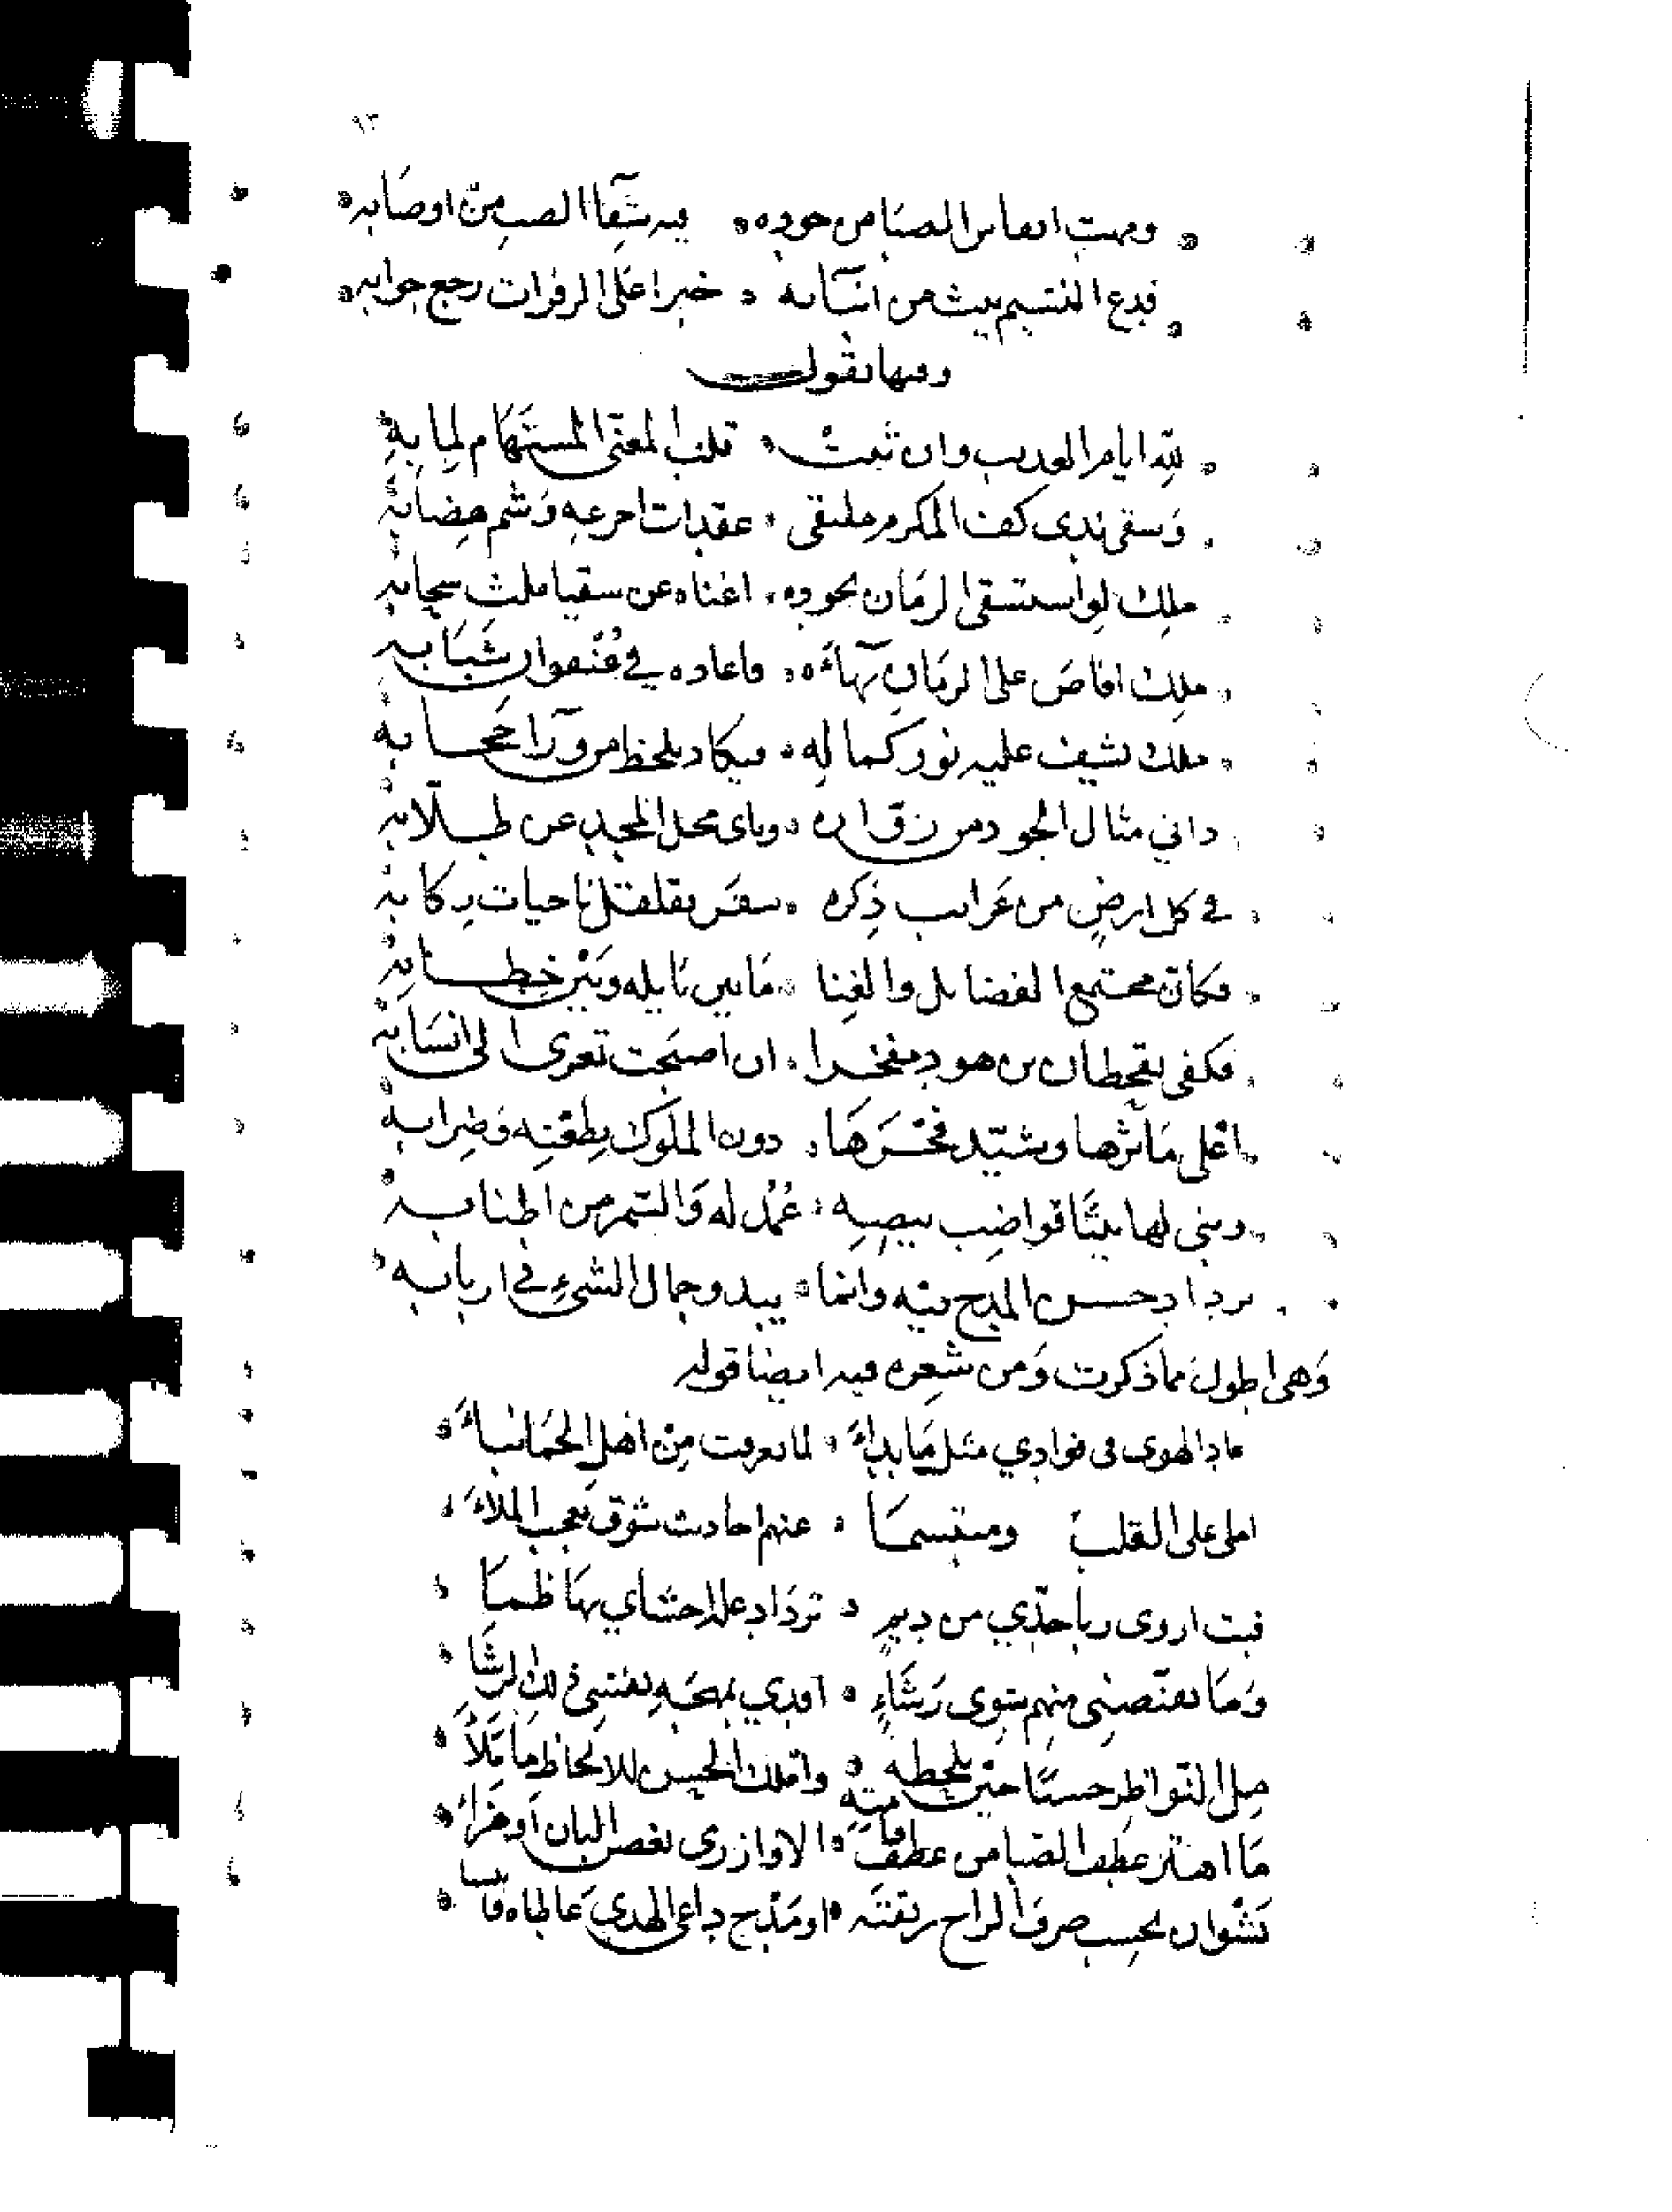 ٩٣
ومهب انفاس الصبا من جوده فيه شفاا الصب من اوصابه
فدع النسيم يبث من انبائه خبرا على الزفرات رجع جوابه
وفيها يقول
لله ايام العذيب وان ثنت قلب المعنى المستهام لما به
وسقى ندى كف المكرم ملتقى عقدات اجرعه وشم هضابه
ملك لو استسقى الزمان بجوده اغناه عن سقيا ملث سحابه
ملك افاض على الزمان بهاءه واعاده في عنفوان شبابه
ملك يشف عليه نور كماله ويكاد يلحظ من ورآ حجابه
داني منال الجود من زواره وناى محل المجد عن طلابه
في كل ارض من غرايب ذكره سفر يقلقل ناحيات ركابه
وكان مجتمع الفضايل والغنا ما بين نايله وبين خطابه
وكفى بقحطان بن هود مفخرا ان اصبحت تعزى الى انسابه
اعلى مآثرها وشيد فخرها دون الملوك بطعنه وضرابه
وبنى لها بيتا قواضب بيضه عمد له والسمر من اطنابه
يزداد حسن المدح فيه وانما يبدو جمال الشيء في اربابه
وهى اطول مما ذكرت ومن شعره فيه ايضا قوله
عاد الهوى في فوادي مثل ما بداء لما تعرفت من اهل الحما نباء
املى على القلب ومبتسما عنهم احاديث شوق تعجب الملاء
فبت اروى ربا خدي من ديم تزداد على احشاي بها ظما
وما تقنصني منهم سوى رشاء افدي بمهجة نفسي ذلك الرشا
مل النواظر حسنا حين يلحظه واملك الحسن للالحاظ ما ملأ
ما اهتز عطف الصبا من عطفه الا وازرى بغصن البان او هزاء
نشوان يحسب صرف الراح ريقته او مدح داعي الهدي